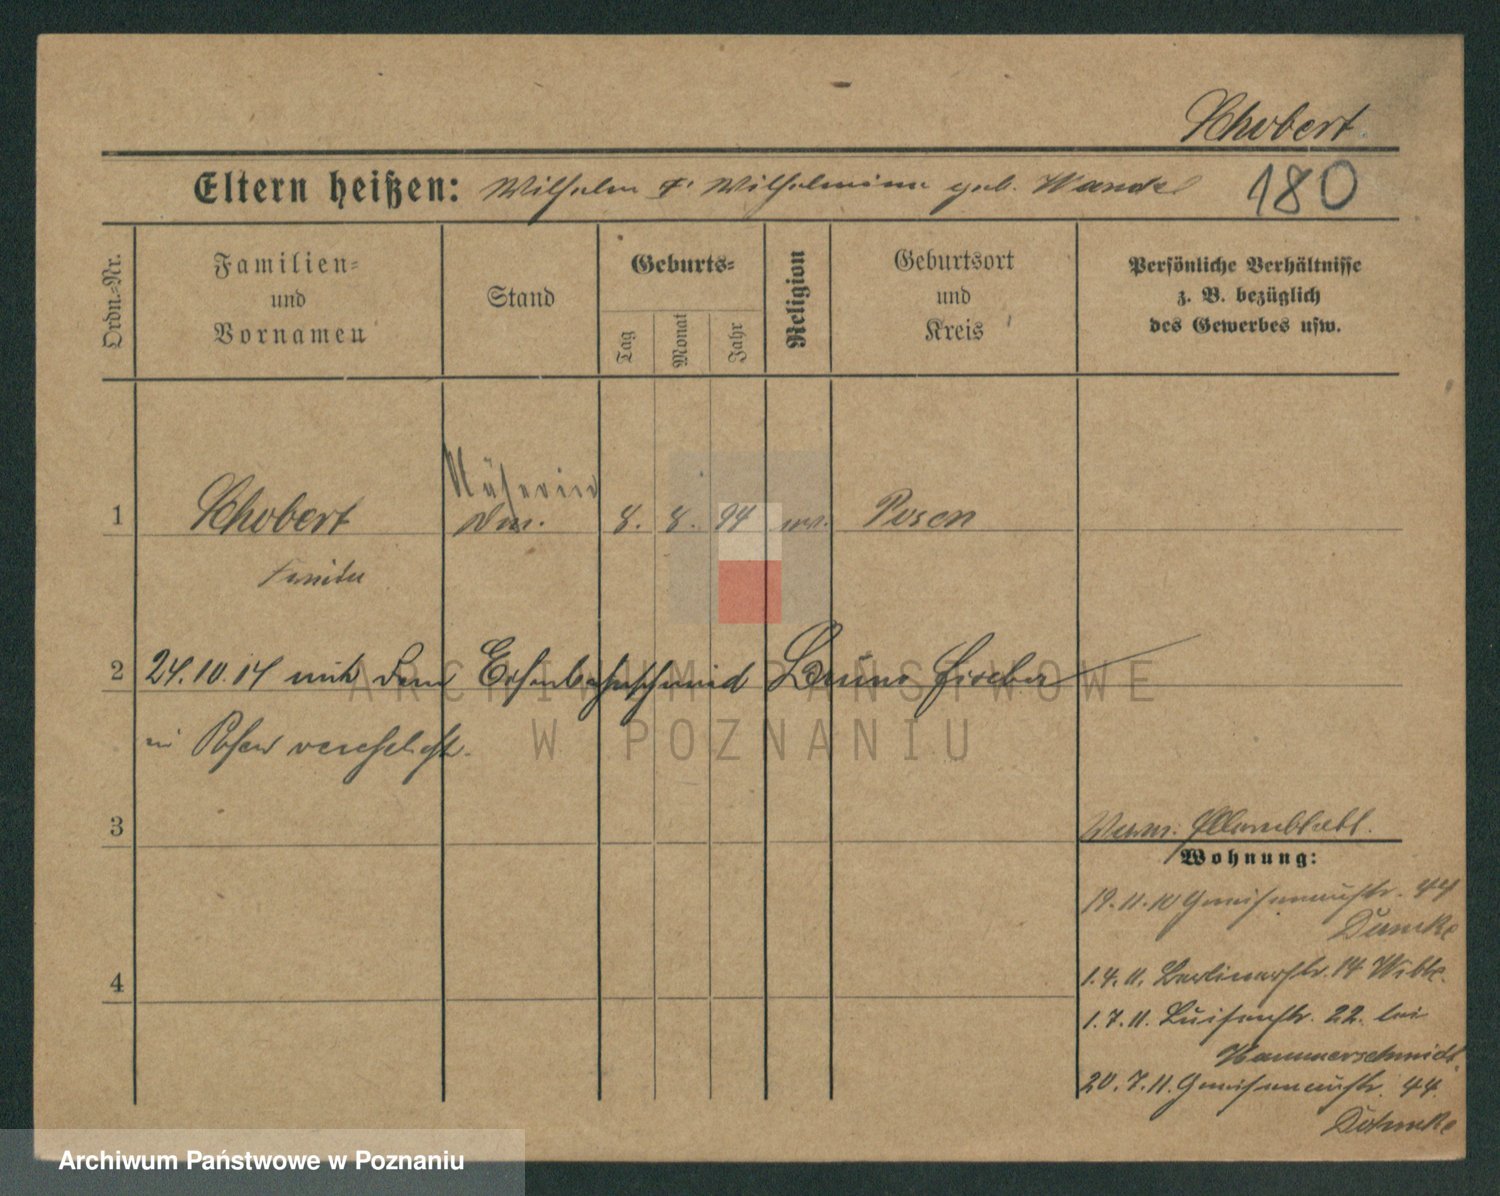 Schobert.
Eltern heißen: Wilhelm u. Wilhelmine geb. Wandel
180
Ordn.-Nr.
Familien-
und
Vornamen
Stand
Geburts-
Tag
Monat
Jahr
Religion
Geburtsort
und
Kreis
Persönliche Verhältnisse
z. B. bezüglich
des Gewerbes usw.
Näherin
1 Schobert 8. 8. 94 Posen
2 24.10.14 mit dem Eisenbahnschmied Bruno Fischer
in Posen verehelicht.
3
Wohnung:
19.11.10 Gneisenaustr. 44
4
1.4.11. Berlinerstr. 14
1.7.11. Luisenstr. 22. bei
Hammerschmidt
20.7.11. Gneisenaustr. 44.
ARCHIWUM PAŃSTWOWE
W POZNANIU
Archiwum Państwowe w Poznaniu